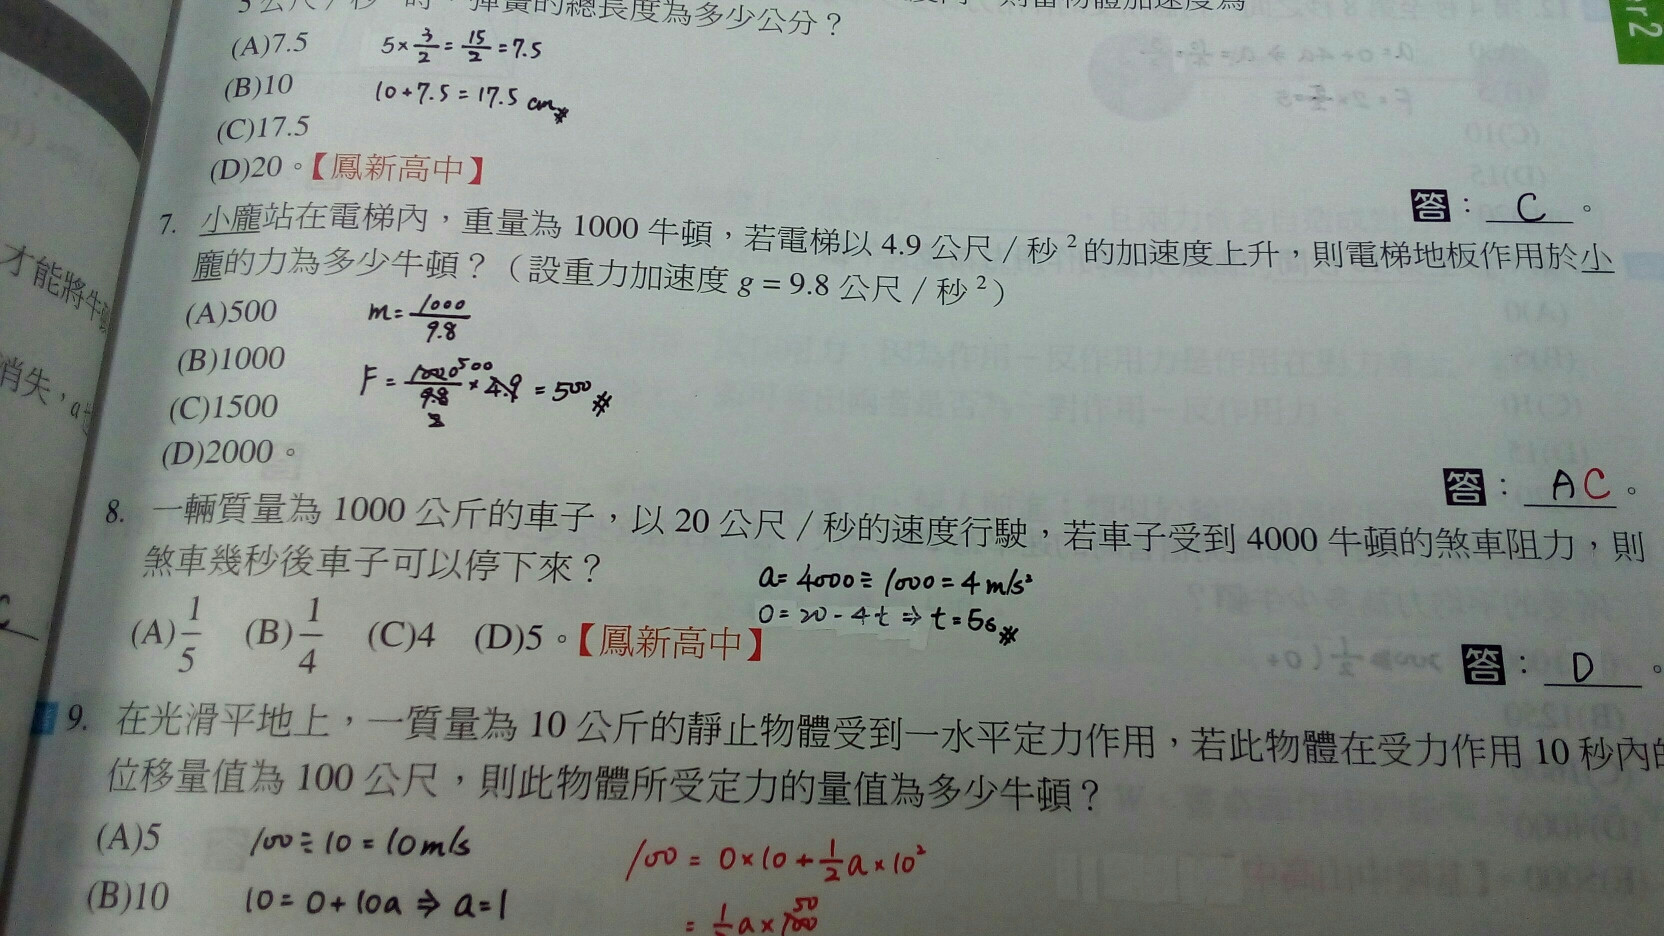 彈簧的總長度為多少公分？
(A)7.5
5×3/2=15/2=7.5
(B)10
10+7.5=17.5 cm#
(C)17.5
(D)20。【鳳新高中】
答：C。
7. 小龐站在電梯內，重量為 1000 牛頓，若電梯以 4.9 公尺／秒²的加速度上升，則電梯地板作用於小
龐的力為多少牛頓？（設重力加速度 g = 9.8 公尺／秒²）
(A)500
m=1000/9.8
(B)1000
F=1000/9.8×4.9=500#
500
2
(C)1500
(D)2000。
答：AC。
8. 一輛質量為 1000 公斤的車子，以 20 公尺／秒的速度行駛，若車子受到 4000 牛頓的煞車阻力，則
煞車幾秒後車子可以停下來？
a=4000÷1000=4m/s²
0=20-4t⇒t=5s#
(A)1/5 (B)1/4 (C)4 (D)5。【鳳新高中】
答：D。
9. 在光滑平地上，一質量為 10 公斤的靜止物體受到一水平定力作用，若此物體在受力作用 10 秒內的
位移量值為 100 公尺，則此物體所受定力的量值為多少牛頓？
(A)5
100÷10=10m/s
100=0×10+1/2a×10²
(B)10
10=0+10a⇒a=1
=1/2a×100
50
才能將牛頓
消失，a也